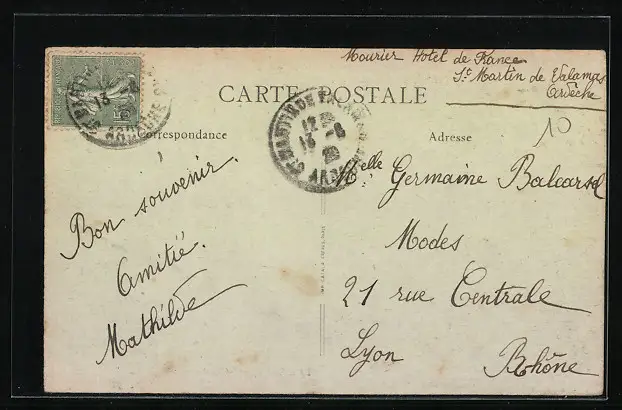 Mourier Hotel de France
St Martin de Valamas
Ardèche
CARTE POSTALE
Correspondance
Adresse
10
Bon souvenir.
Amitié.
Mathilde
Melle Germaine Balcarsel
Modes
21 rue Centrale
Lyon Rhône
ST MARTIN DE VALAMAS
12
13 - 8
ARDECHE